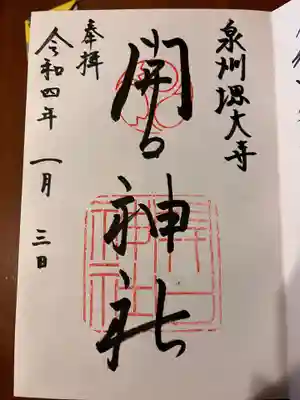 泉州堺大寺
開口神社
奉拝
令和四年一月三日
開口
神社